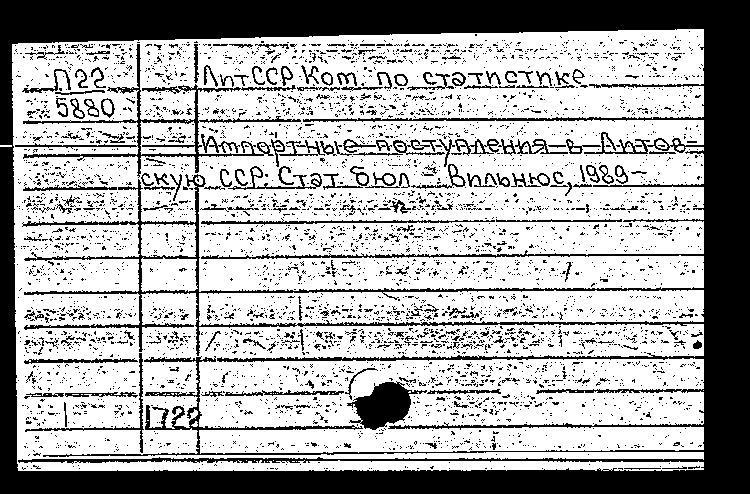 П22
5880
ЛитССР Ком. по статистике
Импортные поступления в Литов-
скую ССР: Стат. бюл - Вильнюс, 1989-
1722